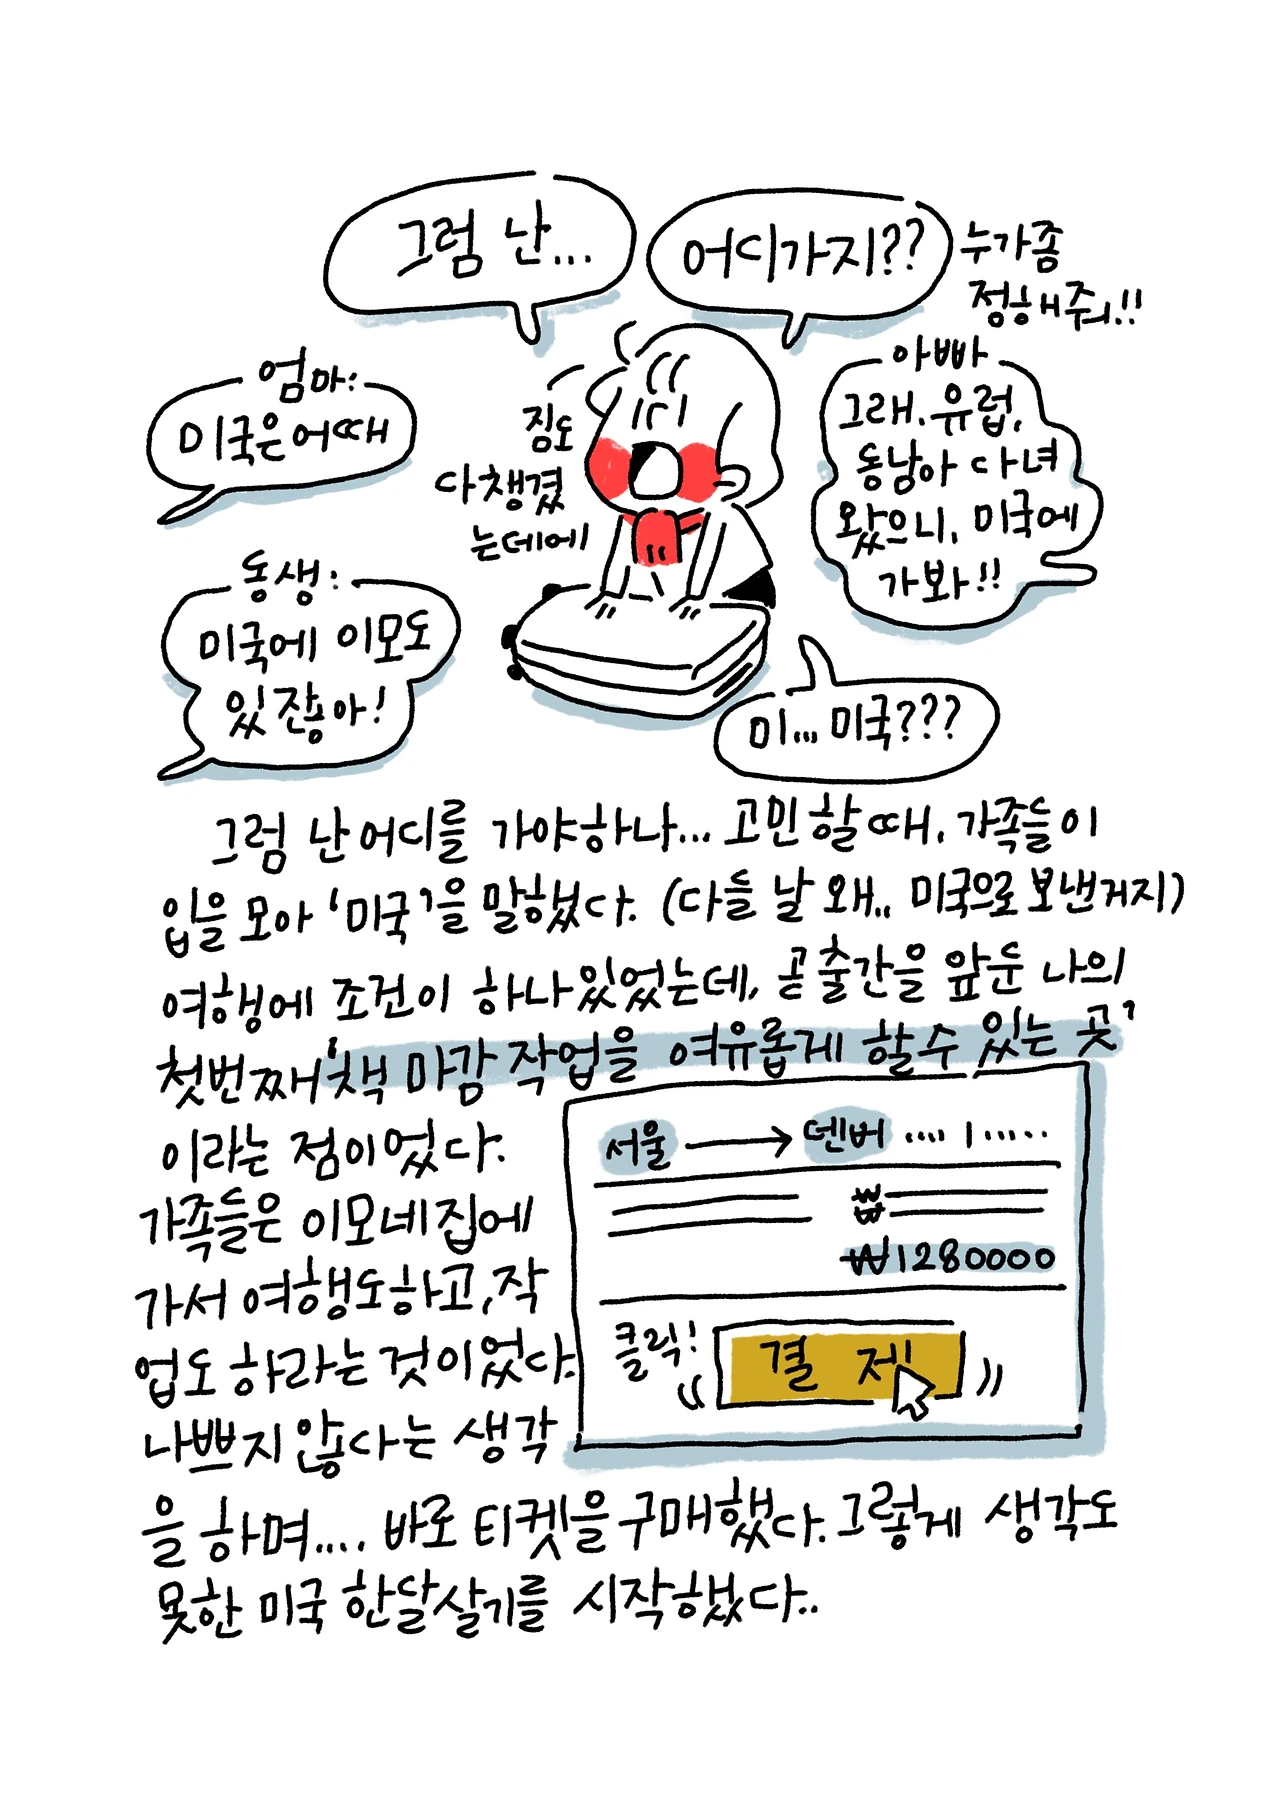 그럼 난...
어디가지??
누가좀
정해줘!!
엄마:
미국은어때
짐도
다챙겼
는데에
아빠
그래. 유럽,
동남아 다녀
왔으니, 미국에
가봐!!
동생:
미국에 이모도
있잖아!
미... 미국???
그럼 난 어디를 가야하나... 고민할 때, 가족들이
입을 모아 '미국'을 말했다. (다들 날 왜.. 미국으로 보낸거지)
여행에 조건이 하나있었는데, 곧 출간을 앞둔 나의
첫번째 '책 마감 작업을 여유롭게 할수 있는 곳'
이라는 점이었다.
가족들은 이모네집에
가서 여행도하고, 작
업도 하라는 것이었다.
나쁘지 않다는 생각
을 하며.... 바로 티켓을 구매했다. 그렇게 생각도
못한 미국 한달살기를 시작했다..
서울 → 덴버 .... | .....
₩
₩1280000
클릭!
결 제